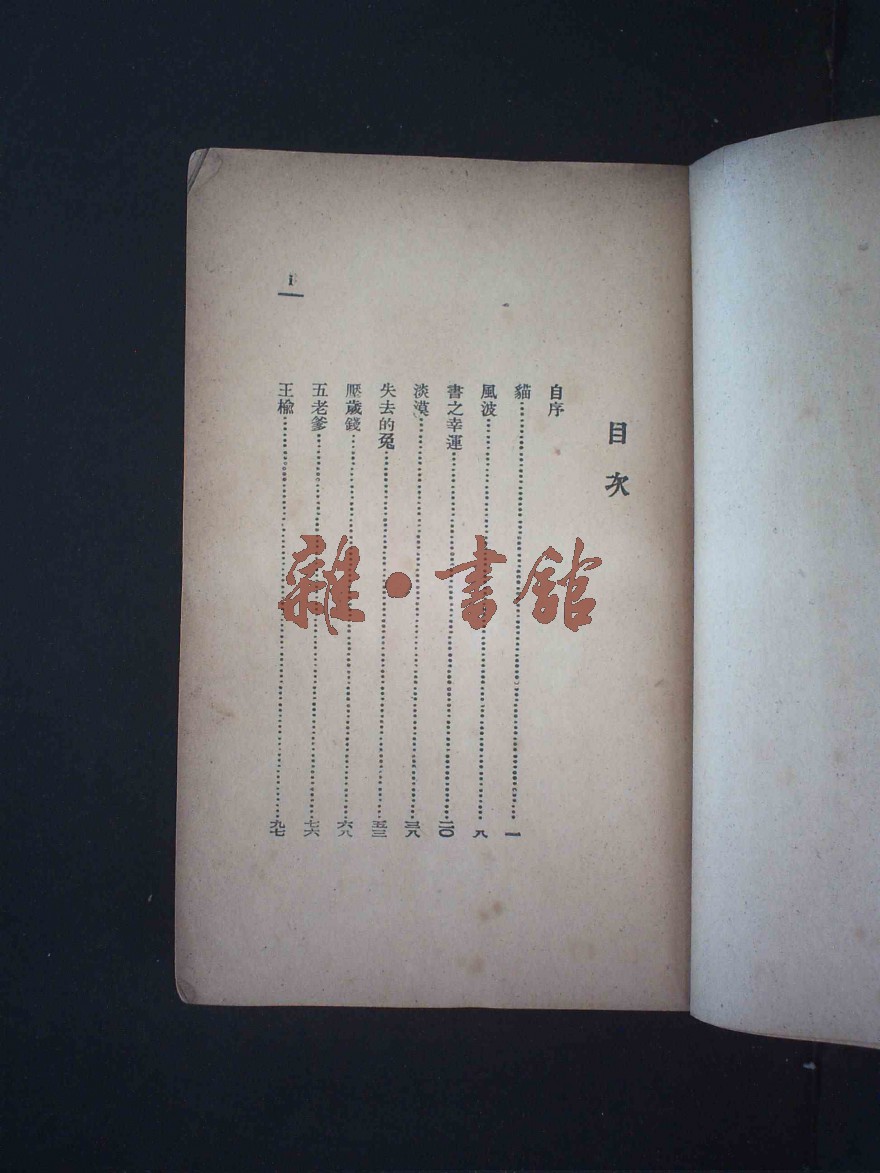 目次
自序
貓……一
風波……九
書之幸運……二〇
淡漠……三八
失去的兔……五三
壓歲錢……六八
五老爹……七六
王楡……九七
1
雜·書館